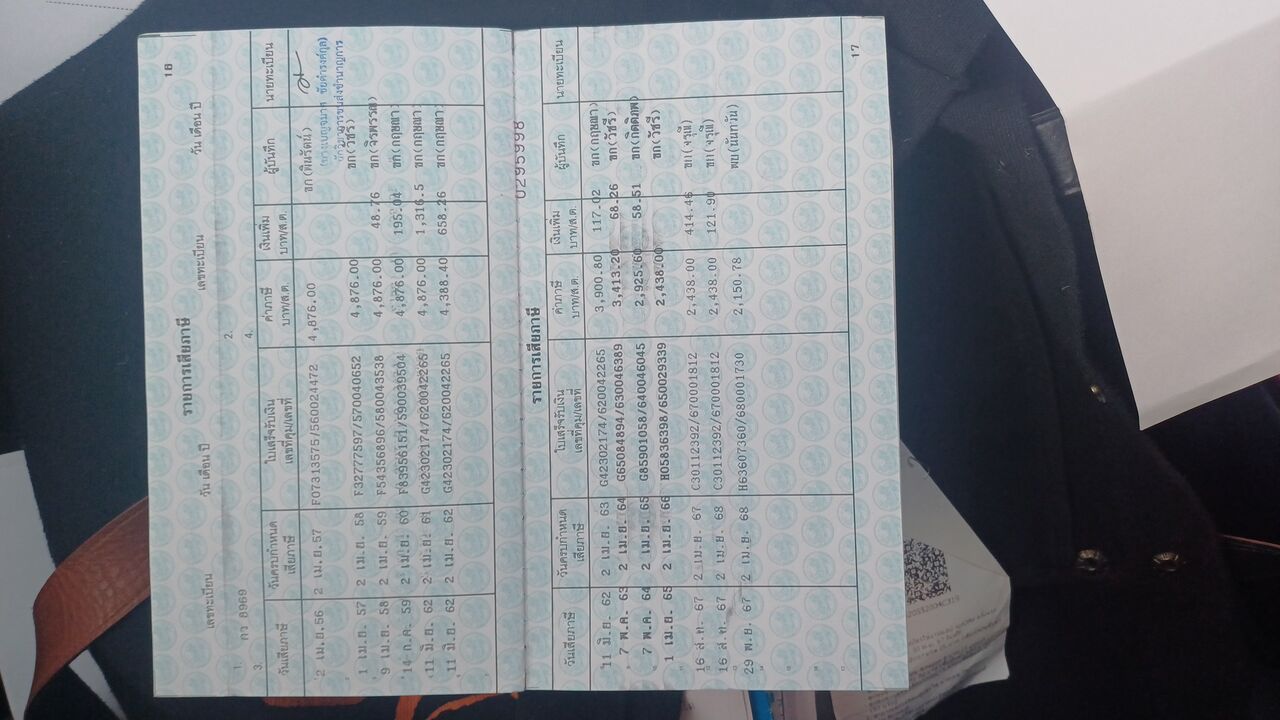 16
รายการเสียภาษี
เลขทะเบียน วัน เดือน ปี เลขทะเบียน วัน เดือน ปี
1. กว 8969 2.
3. 4.
วันเสียภาษี วันครบกำหนดเสียภาษี ใบเสร็จรับเงิน เล่มที่คุม/เลขที่ ค่าภาษี บาท/ส.ต. เงินเพิ่ม บาท/ส.ต. ผู้บันทึก นายทะเบียน
2 เม.ย.56 2 เม.ย.57 F07313575/560024472 4,876.00
1 เม.ย. 57 2 เม.ย. 58 F32777597/570040652 4,876.00 ขก(วัชรี)
9 เม.ย. 58 2 เม.ย. 59 F54356896/580043538 4,876.00 48.76 ขก(จิรพรรณ)
14 ก.ค. 59 2 เม.ย. 60 F83956151/590039504 4,876.00 195.04 ขก(กฤษณา)
11 มิ.ย. 62 2 เม.ย. 61 G42302174/620042265 4,876.00 1,316.5 ขก(กฤษณา)
11 มิ.ย. 62 2 เม.ย. 62 G42302174/620042265 4,388.40 658.26 ขก(กฤษณา)
0295998
รายการเสียภาษี
วันเสียภาษี วันครบกำหนดเสียภาษี ใบเสร็จรับเงิน เล่มที่คุม/เลขที่ ค่าภาษี บาท/ส.ต. เงินเพิ่ม บาท/ส.ต. ผู้บันทึก นายทะเบียน
11 มิ.ย. 62 2 เม.ย. 63 G42302174/620042265 3,900.80 117.02 ขก(กฤษณา)
7 พ.ค. 63 2 เม.ย. 64 G65084894/630046389 3,413.20 68.26 ขก(วัชรี)
7 พ.ค. 64 2 เม.ย. 65 G85901058/640046045 2,925.60 58.51 ขก(กิตติภพ)
1 เม.ย. 65 2 เม.ย. 66 H05836398/650029339 2,438.00 ขก(วัชรี)
16 ส.ค. 67 2 เม.ย. 67 C30112392/670001812 2,438.00 414.46
16 ส.ค. 67 2 เม.ย. 68 C30112392/670001812 2,438.00 121.90
29 พ.ย. 67 2 เม.ย. 68 H63607360/680001730 2,150.78 พย(นันทวัน)
17